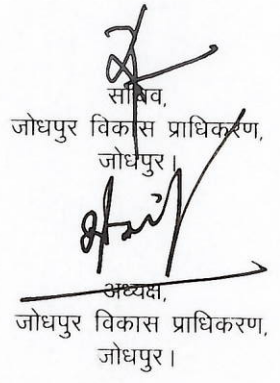 सचिव,
जोधपुर विकास प्राधिकरण,
जोधपुर।
अध्यक्ष,
जोधपुर विकास प्राधिकरण,
जोधपुर।